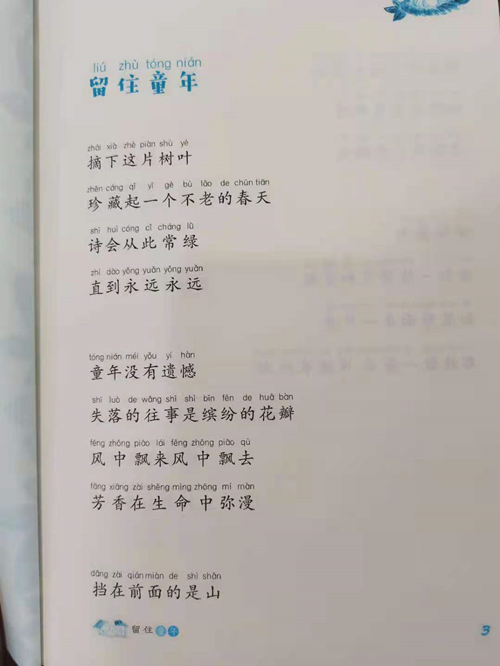 liú zhù tóng nián
留住童年
zhāi xià zhè piàn shù yè
摘下这片树叶
zhēn cáng qǐ yī gè bù lǎo de chūn tiān
珍藏起一个不老的春天
shī huì cóng cǐ cháng lǜ
诗会从此常绿
zhí dào yǒng yuǎn yǒng yuǎn
直到永远永远
tóng nián méi yǒu yí hàn
童年没有遗憾
shī luò de wǎng shì shì bīn fēn de huā bàn
失落的往事是缤纷的花瓣
fēng zhōng piāo lái fēng zhōng piāo qù
风中飘来风中飘去
fāng xiāng zài shēng mìng zhōng mí màn
芳香在生命中弥漫
dǎng zài qián miàn de shì shān
挡在前面的是山
留住童年 3